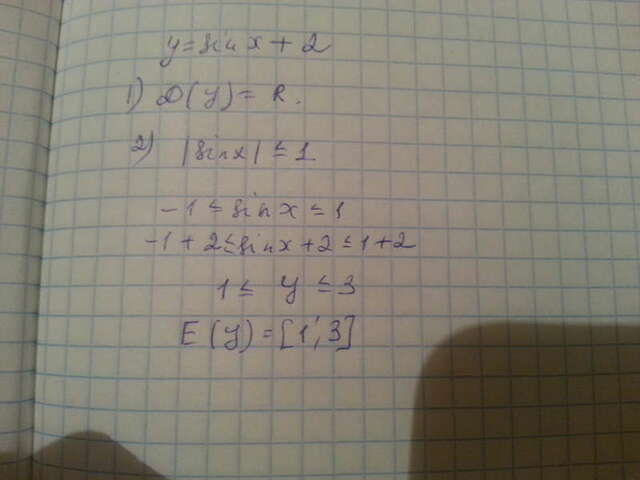 y = sin x + 2
1) D(y) = R.
2) |sin x| ≤ 1
-1 ≤ sin x ≤ 1
-1 + 2 ≤ sin x + 2 ≤ 1 + 2
1 ≤ y ≤ 3
E(y) = [1; 3]